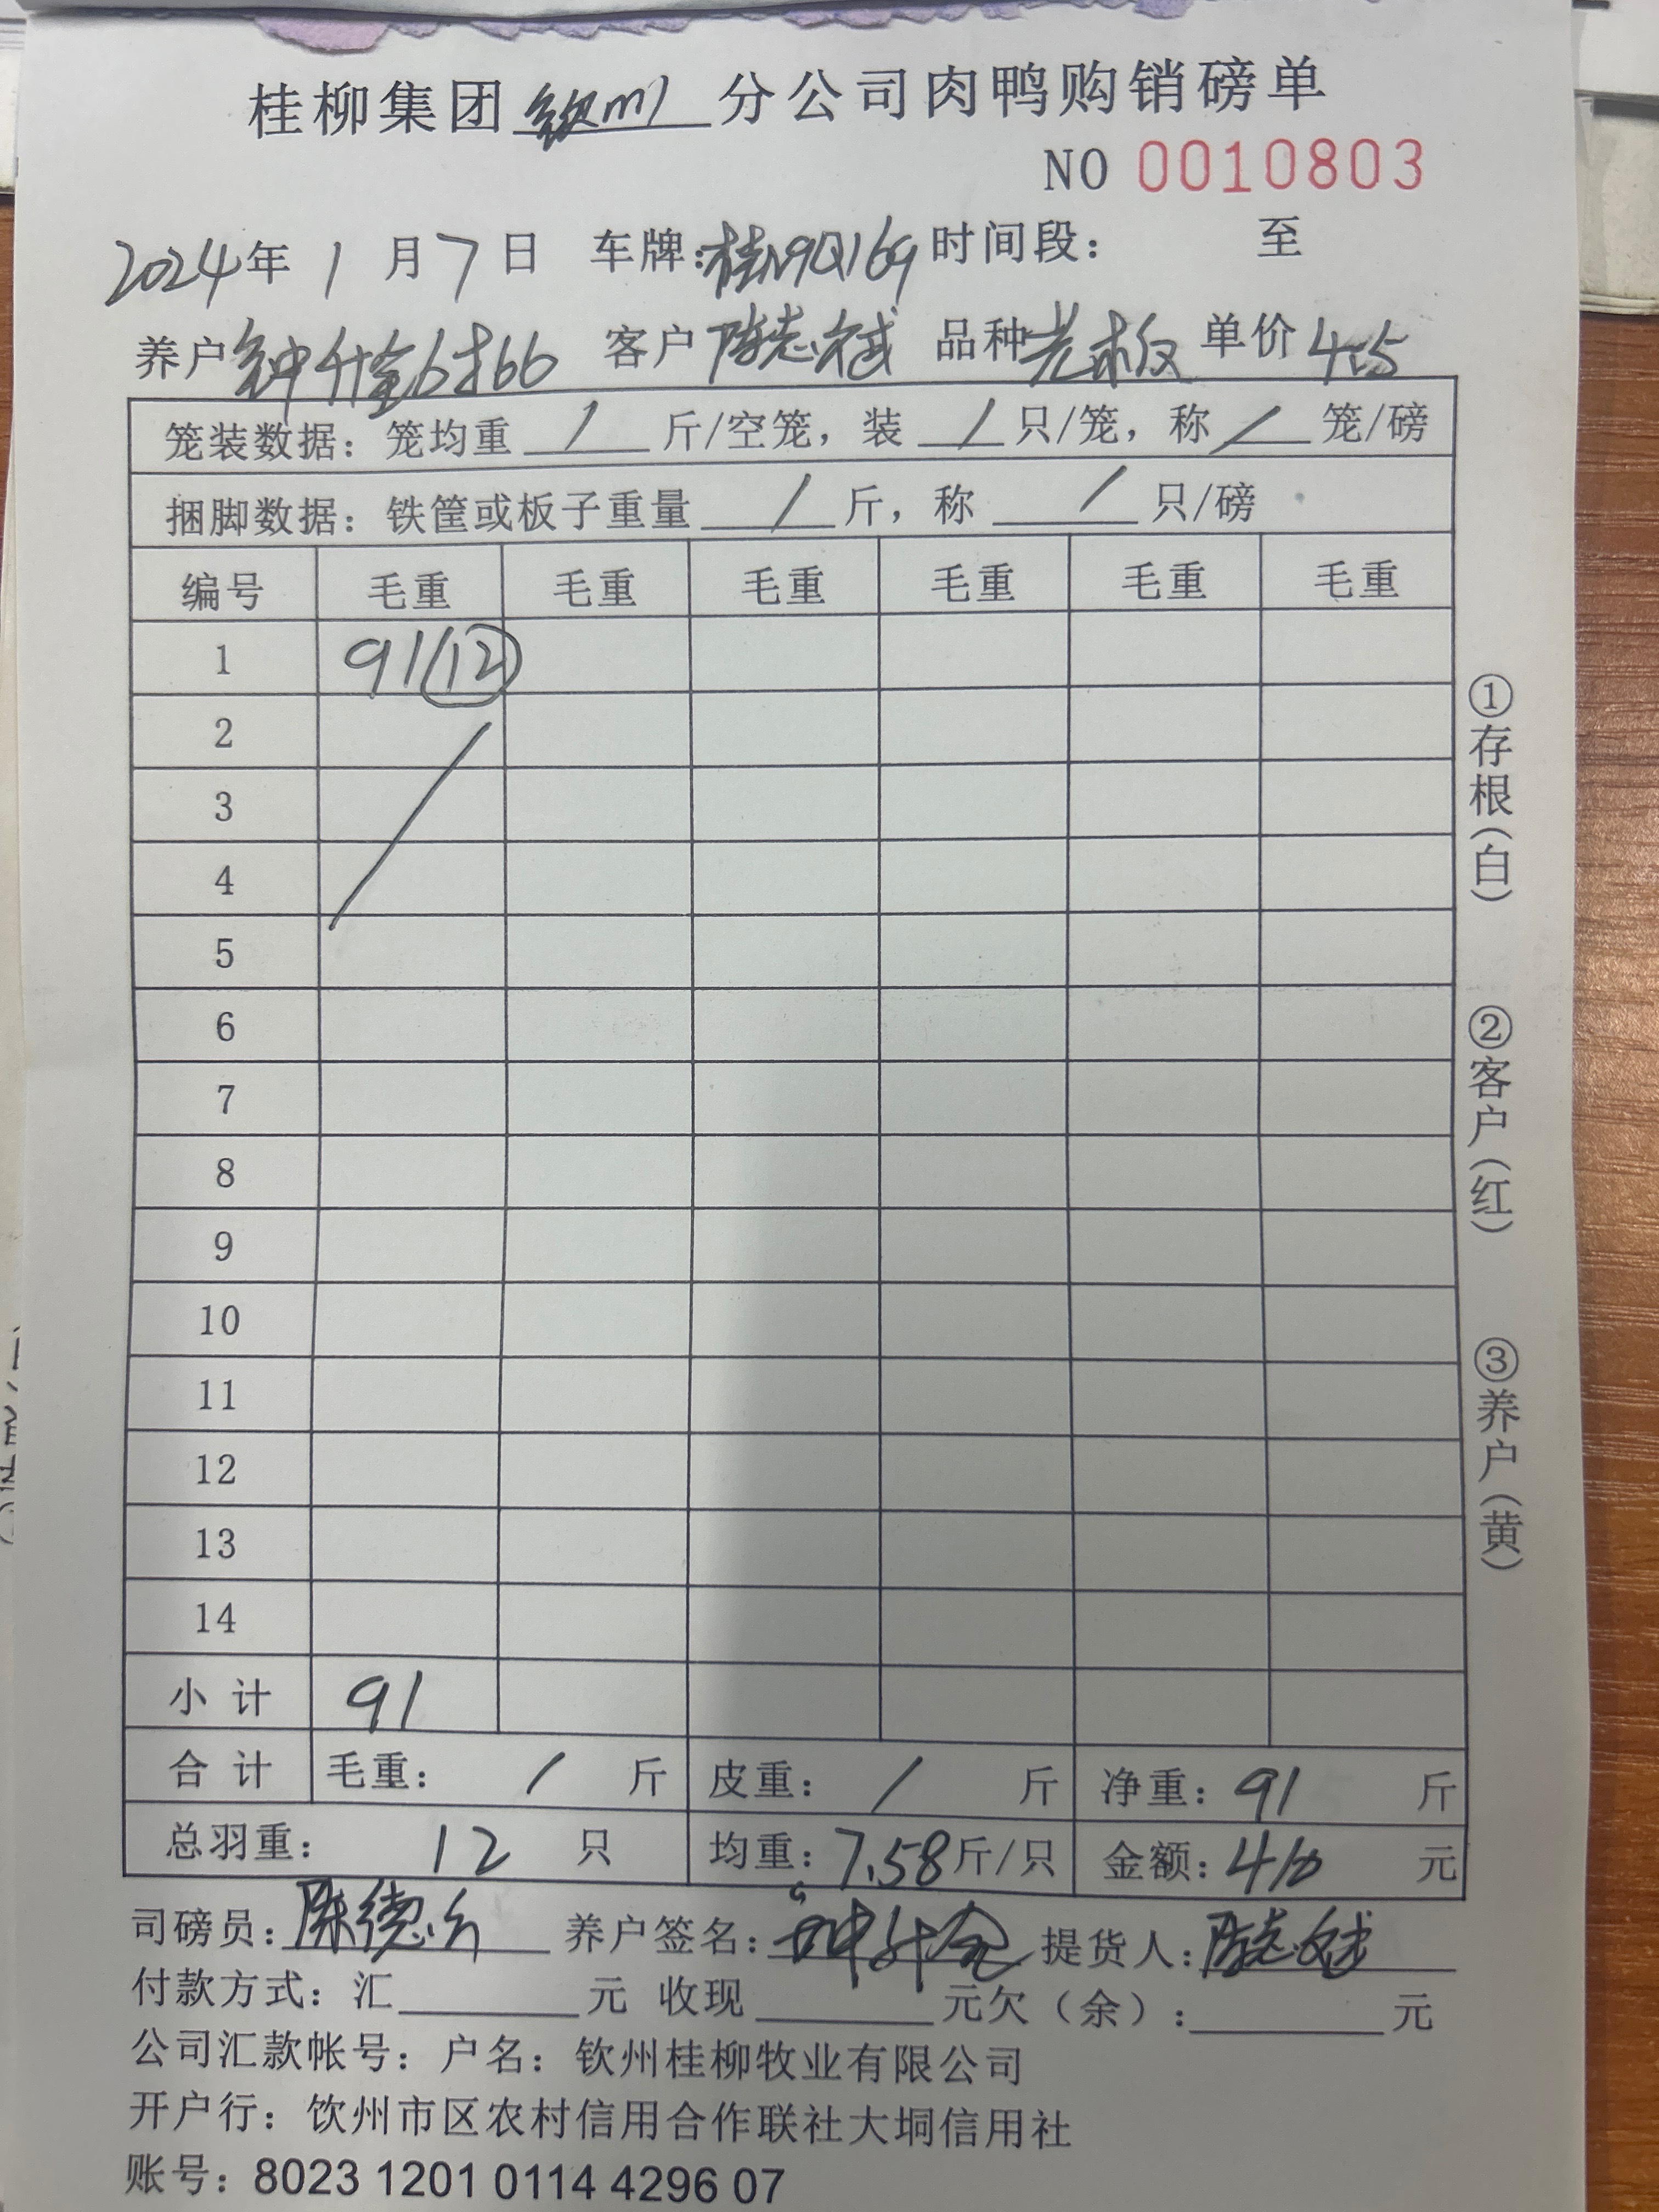 桂柳集团 钦州 分公司肉鸭购销磅单
NO 0010803
2024年 1 月 7 日 车牌:桂N9Q169 时间段: 至
养户 钟升金 6566 客户 陈志斌 品种 光板 单价 4.5
笼装数据: 笼均重 / 斤/空笼, 装 / 只/笼, 称 / 笼/磅
捆脚数据: 铁筐或板子重量 / 斤, 称 / 只/磅
编号 毛重 毛重 毛重 毛重 毛重 毛重
1 91 12
2
3
4
5
6
7
8
9
10
11
12
13
14
小 计 91
合 计 毛重: / 斤 皮重: / 斤 净重: 91 斤
总羽重: 12 只 均重: 7.58 斤/只 金额: 410 元
司磅员: 陈德 养户签名: 钟升金 提货人: 陈志斌
付款方式: 汇 元 收现 元欠(余): 元
公司汇款帐号: 户名: 钦州桂柳牧业有限公司
开户行: 饮州市区农村信用合作联社大垌信用社
账号: 8023 1201 0114 4296 07
①存根(白)
②客户(红)
③养户(黄)